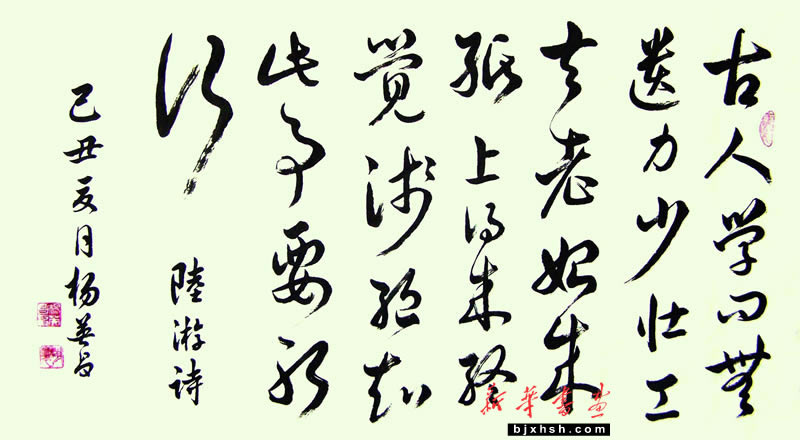 古人学问無
遗力少壮工
夫老始成
纸上得来终
觉浅绝知
此事要躬
行
陸游詩
己丑夏月杨
新华书画
bjxhsh.com